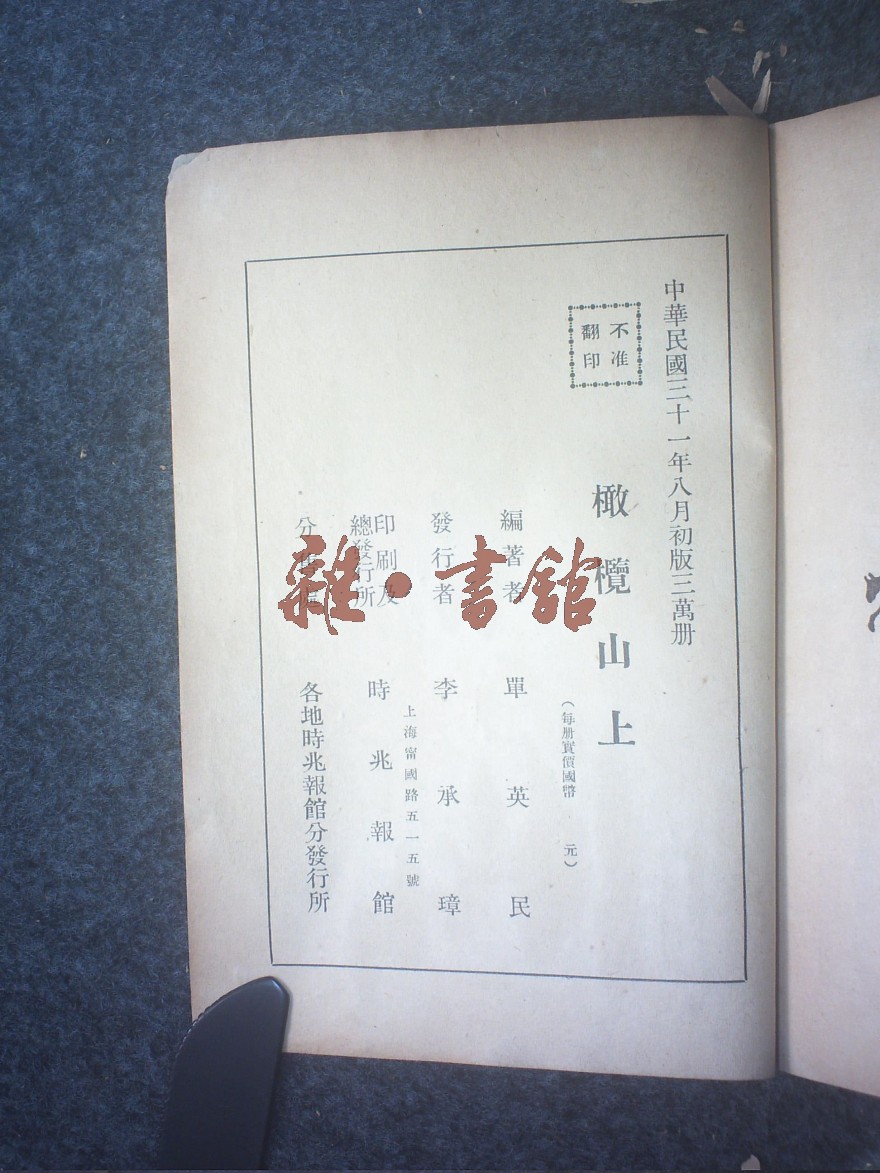 中華民國三十一年八月初版三萬册
不准
翻印
橄欖山上
（每册實價國幣　元）
編著者　單英民
發行者　李承璋
上海甯國路五一五號
印刷及
總發行所
時兆報館
各地時兆報館分發行所
雜·書館